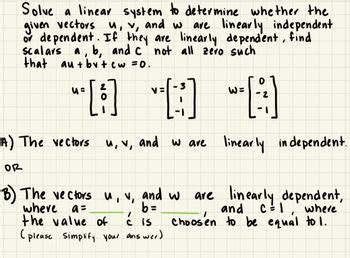 Solve a linear system to determine whether the
given vectors u, v, and w are linearly independent
or dependent. If they are linearly dependent, find
scalars a, b, and c not all zero such
that au + bv + cw = 0.
u = [2 0 1] v = [-3 1 -1] w = [0 -2 -1]
A) The vectors u, v, and w are linearly independent.
OR
B) The vectors u, v, and w are linearly dependent,
where a= ____, b= ____, and c=1, where
the value of c is choosen to be equal to 1.
(please simplify your answer)